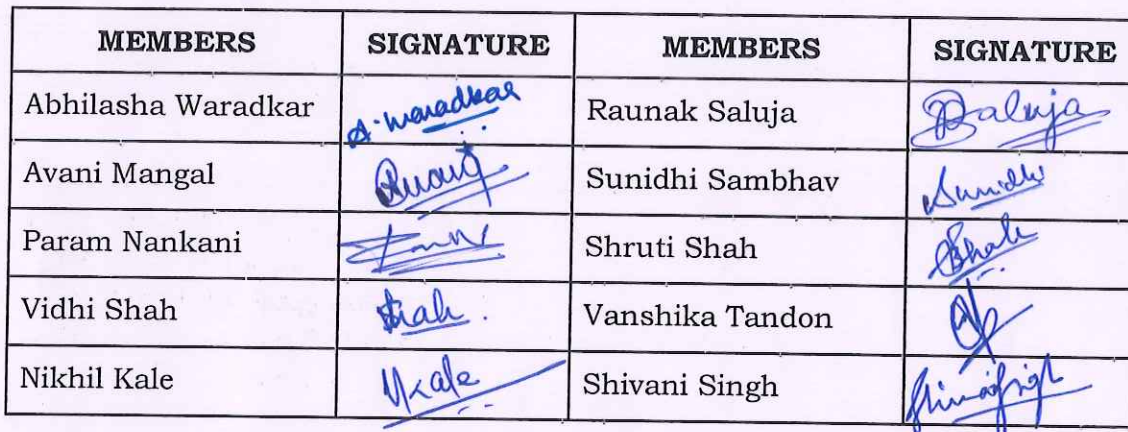 MEMBERS SIGNATURE MEMBERS SIGNATURE
Abhilasha Waradkar A. Waradkar Raunak Saluja Saluja
Avani Mangal Avani Sunidhi Sambhav Sunidhi
Param Nankani Shruti Shah Shah
Vidhi Shah Shah. Vanshika Tandon
Nikhil Kale NKale Shivani Singh Shivani Singh